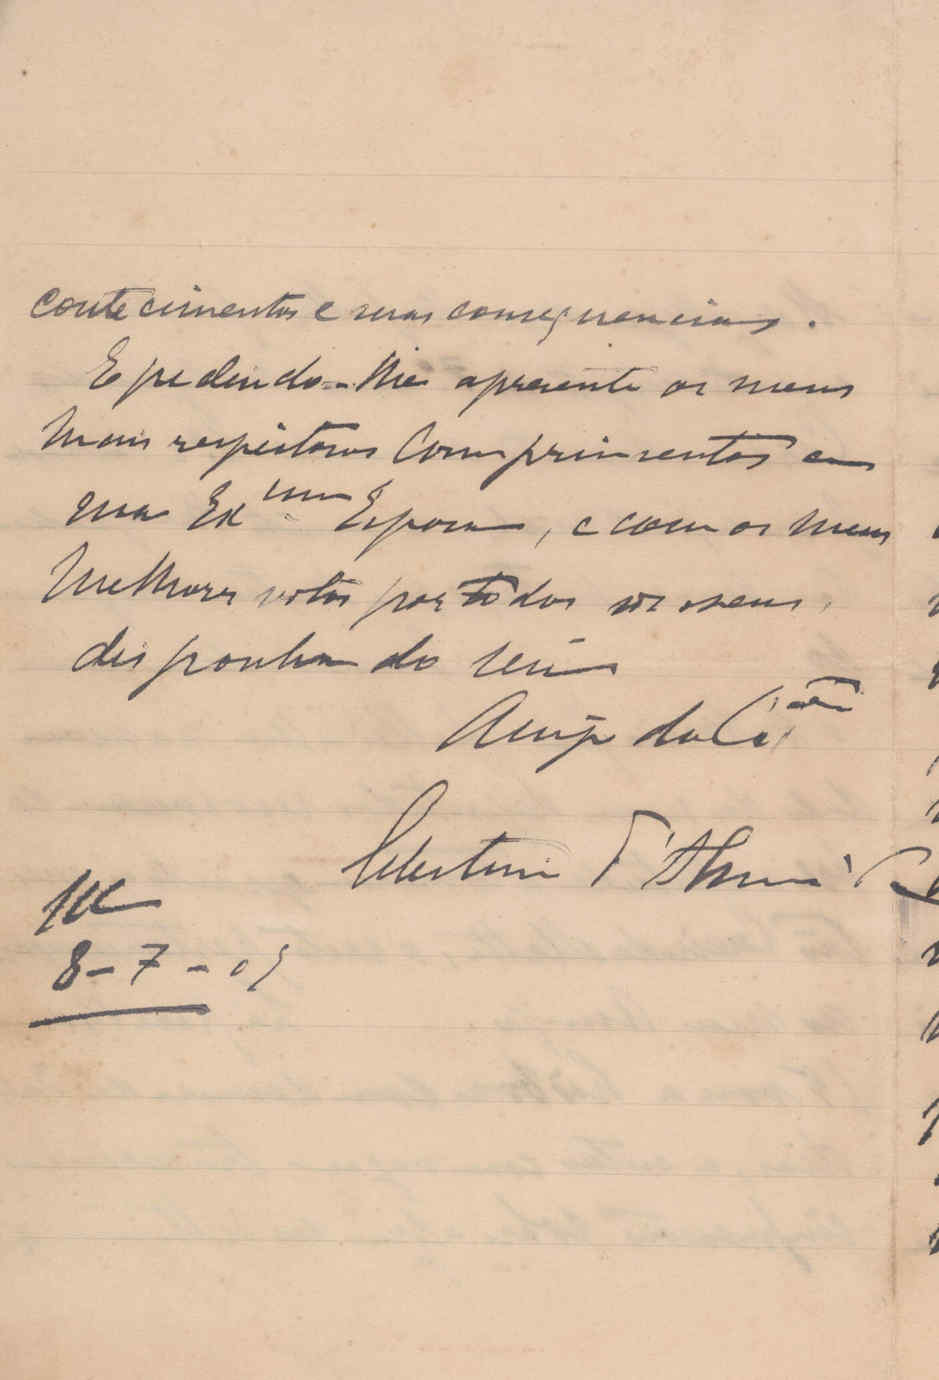 contecimentos e suas consequencias.
E pedindo-lhe apresente os meus
mais respeitosos comprimentos a
sua Exma Esposa, e com os meus
melhores votos por todos os seus,
disponha do seu
Amigo da
Celestino d'Almeida
8-7-09